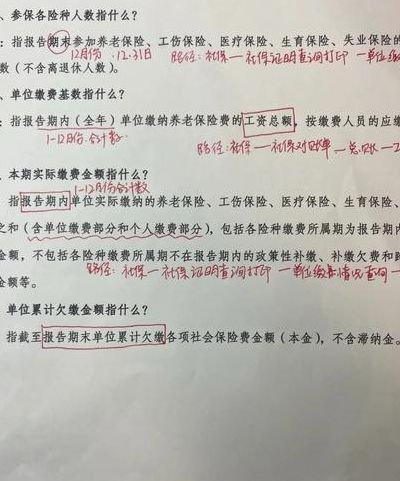 、参保各险种人数指什么？
：指报告期末参加养老保险、工伤保险、医疗保险、生育保险、失业保险的
12月份、12.31日 路径：社保一社保证明查询打印 一单位缴
数（不含离退休人数）。
、单位缴费基数指什么？
：指报告期内（全年）单位缴纳养老保险费的工资总额，按缴费人员的应缴
1-12月份.合计数 路径：社保一社保对账单
、本期实际缴费金额指什么？
1-12月份合计数
指报告期内单位实际缴纳的养老保险、工伤保险、医疗保险、生育保险、
之和（含单位缴费部分和个人缴费部分），包括各险种缴费所属期为报告期内
金额，不包括各险种缴费所属期不在报告期内的政策性补缴、补缴欠费和
路径：社保一社保证明查询打印 一单位缴费情况查询一
金额等。
单位累计欠缴金额指什么？
指截至报告期末单位累计欠缴各项社会保险费金额（本金），不含滞纳金。